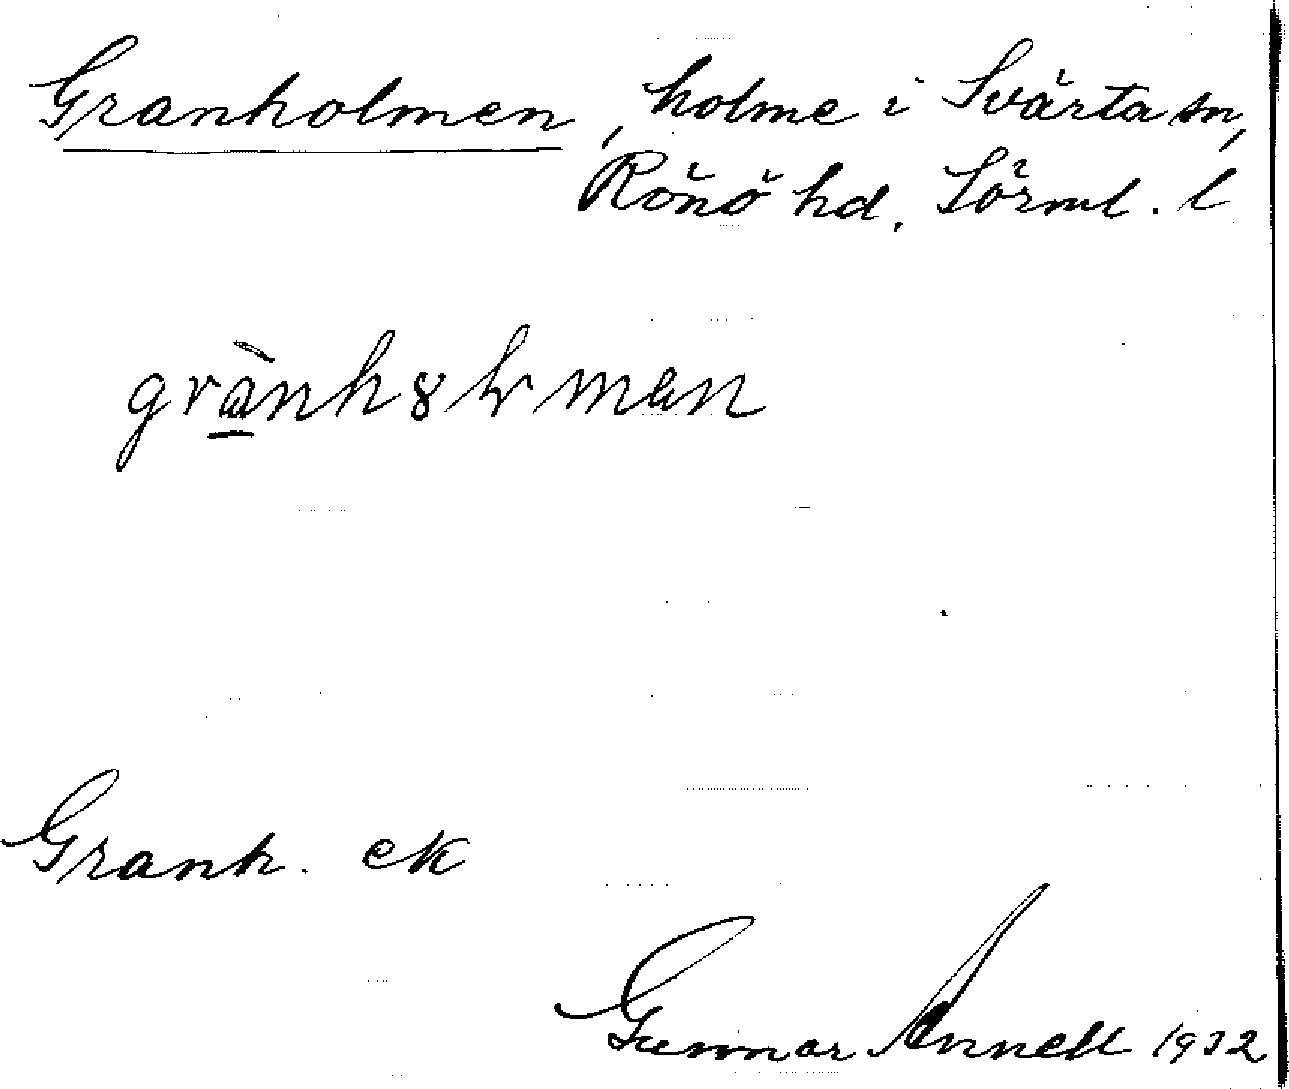 Granholmen, holme i Svärta sn,
Rönö hd, Sörml. l
grành8lman
Granh. ek
Gunnar Annell 1932